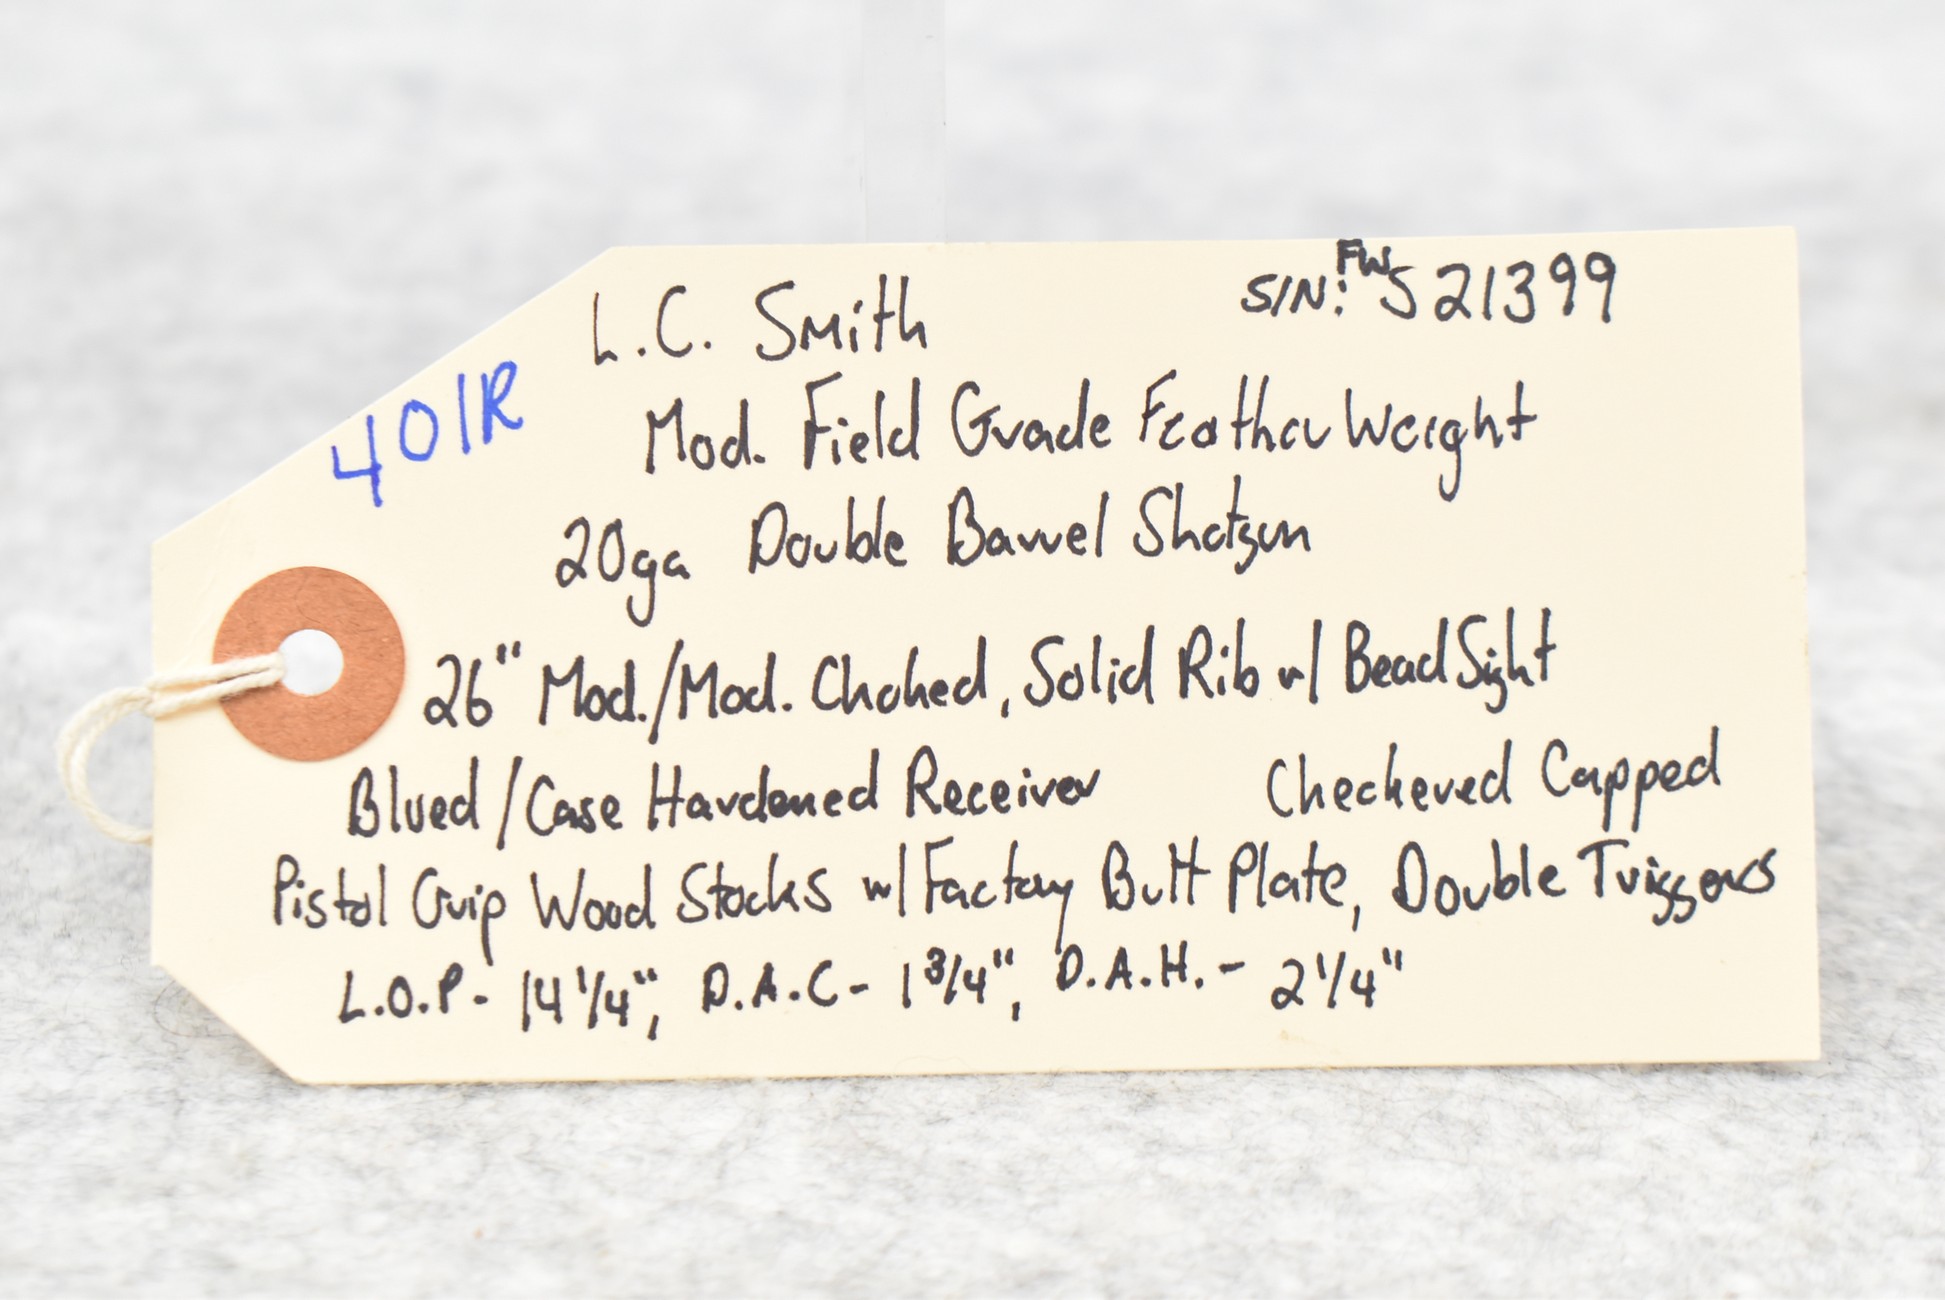 L.C. Smith S/N: FWS21399
401R
Mod. Field Grade FeatherWeight
20ga Double Barrel Shotgun
26" Mod./Mod. Choked, Solid Rib w/ Bead Sight
Blued/Case Hardened Receiver Checkered Capped
Pistol Grip Wood Stocks w/ Factory Butt Plate, Double Triggers
L.O.P- 14 1/4", D.A.C- 1 3/4", D.A.H.- 2 1/4"